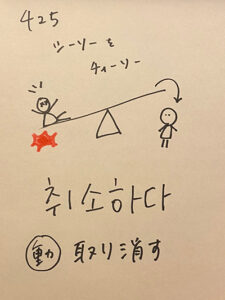 425
シーソーを
チィーソー
취소하다
動 取り消す